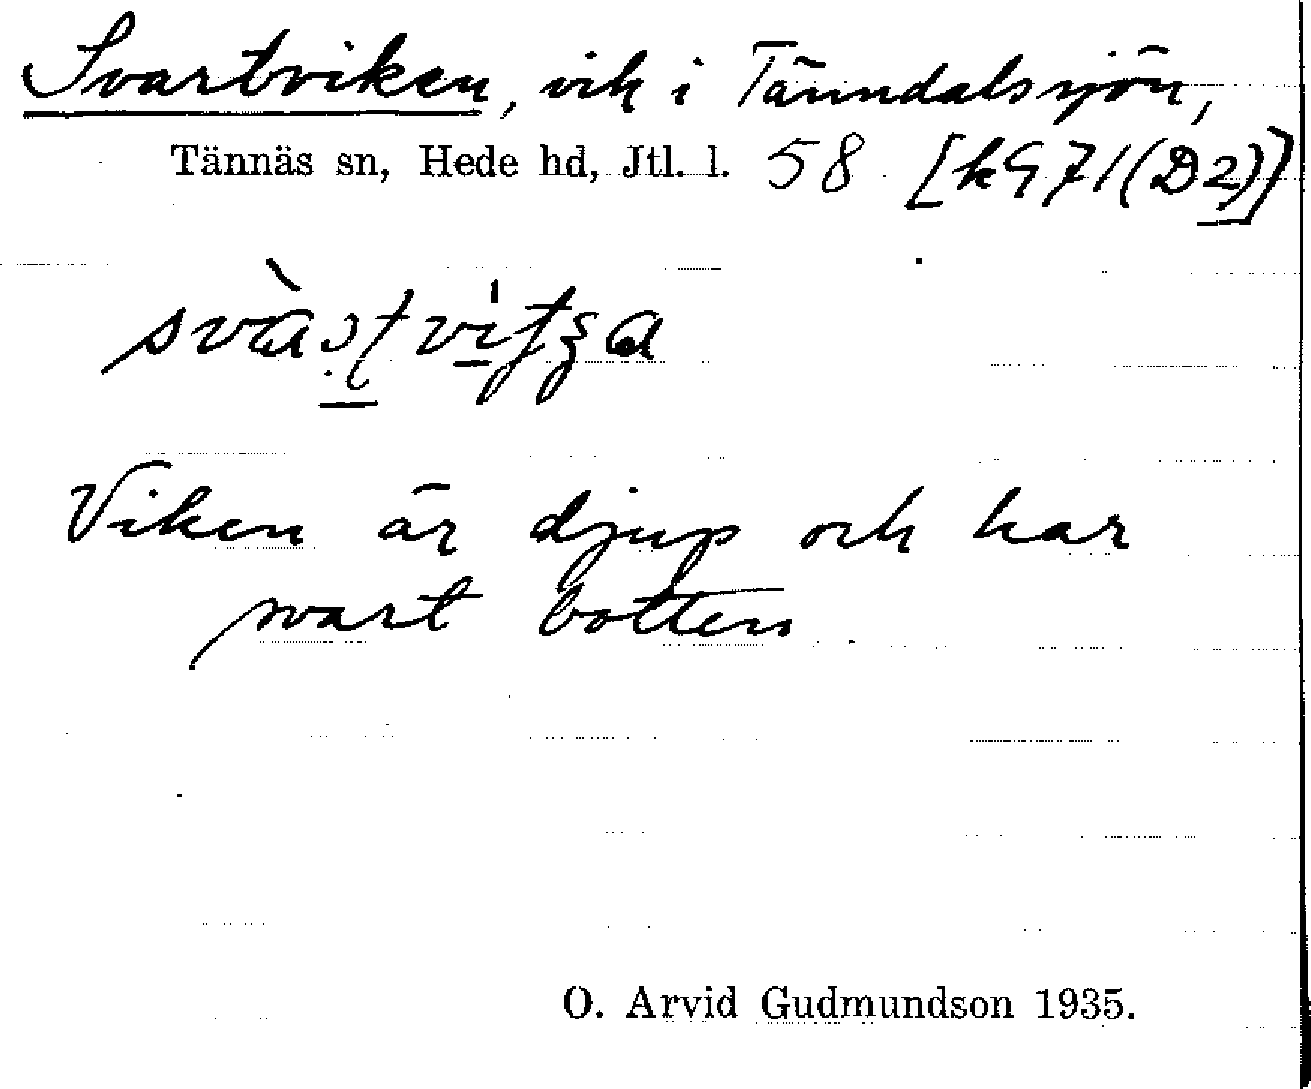 Svartviken, vik i Tänndalssjön,
Tännäs sn, Hede hd, Jtl. l. 58 [kG71(D2)]
Viken är djup och har
svart botten
O. Arvid Gudmundson 1935.